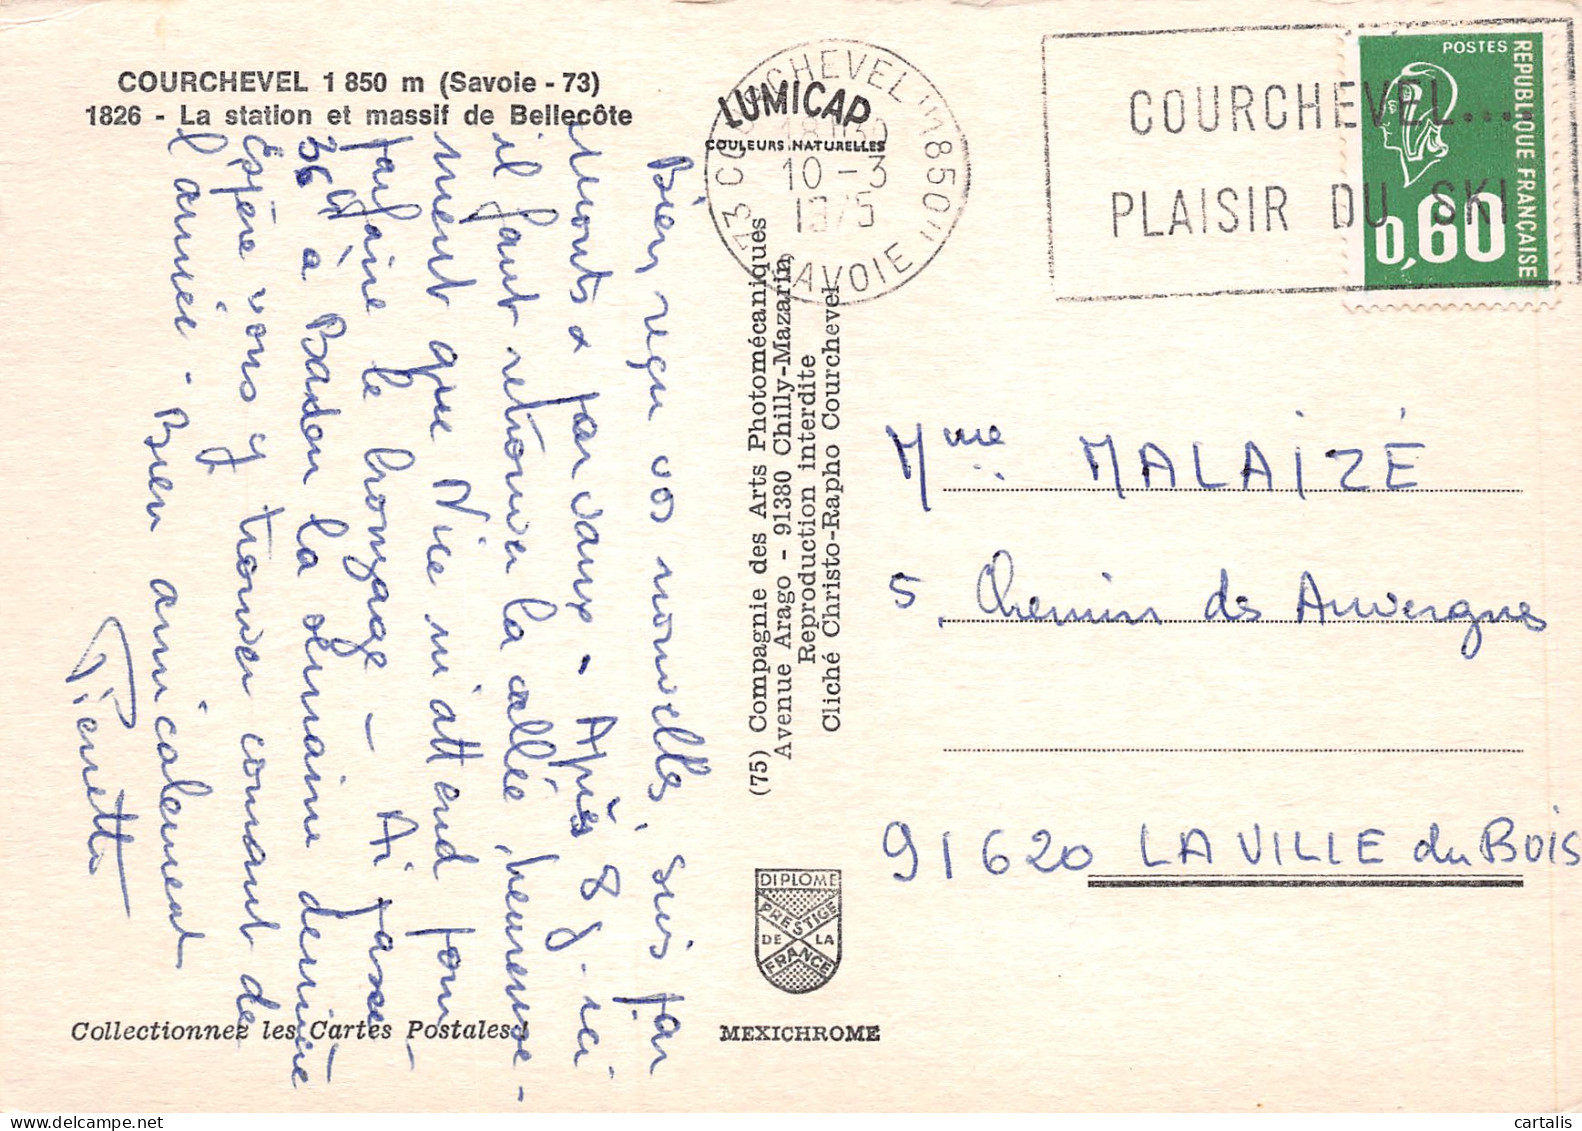 COURCHEVEL 1 850 m (Savoie - 73)
1826 - La station et massif de Bellecôte
LUMICAP
COULEURS NATURELLES
73 COURCHEVEL 1850m
18H30
10 - 3
1975
SAVOIE
COURCHEVEL....
PLAISIR DU SKI
POSTES
REPUBLIQUE FRANÇAISE
0,60
Bien reçu vos nouvelles, suis par
monts & par vaux. Après 8 j. ici
il faut retrouver la vallée, heureuse-
ment que Nice m'attend pour
parfaire le bronzage - Ai passé
36 H à Baden la semaine dernière
Espère vous y trouver courant de
l'année - Bien amicalement
Pierrette
(75) Compagnie des Arts Photomécaniques
Avenue Arago - 91380 Chilly-Mazarin
Reproduction interdite
Cliché Christo-Rapho Courchevel
Mme MALAIZÉ
5, Chemin des Auvergne
91620 LA VILLE du BOIS
DIPLOME
PRESTIGE
DE LA
FRANCE
Collectionnez les Cartes Postales !
MEXICHROME
cartalis